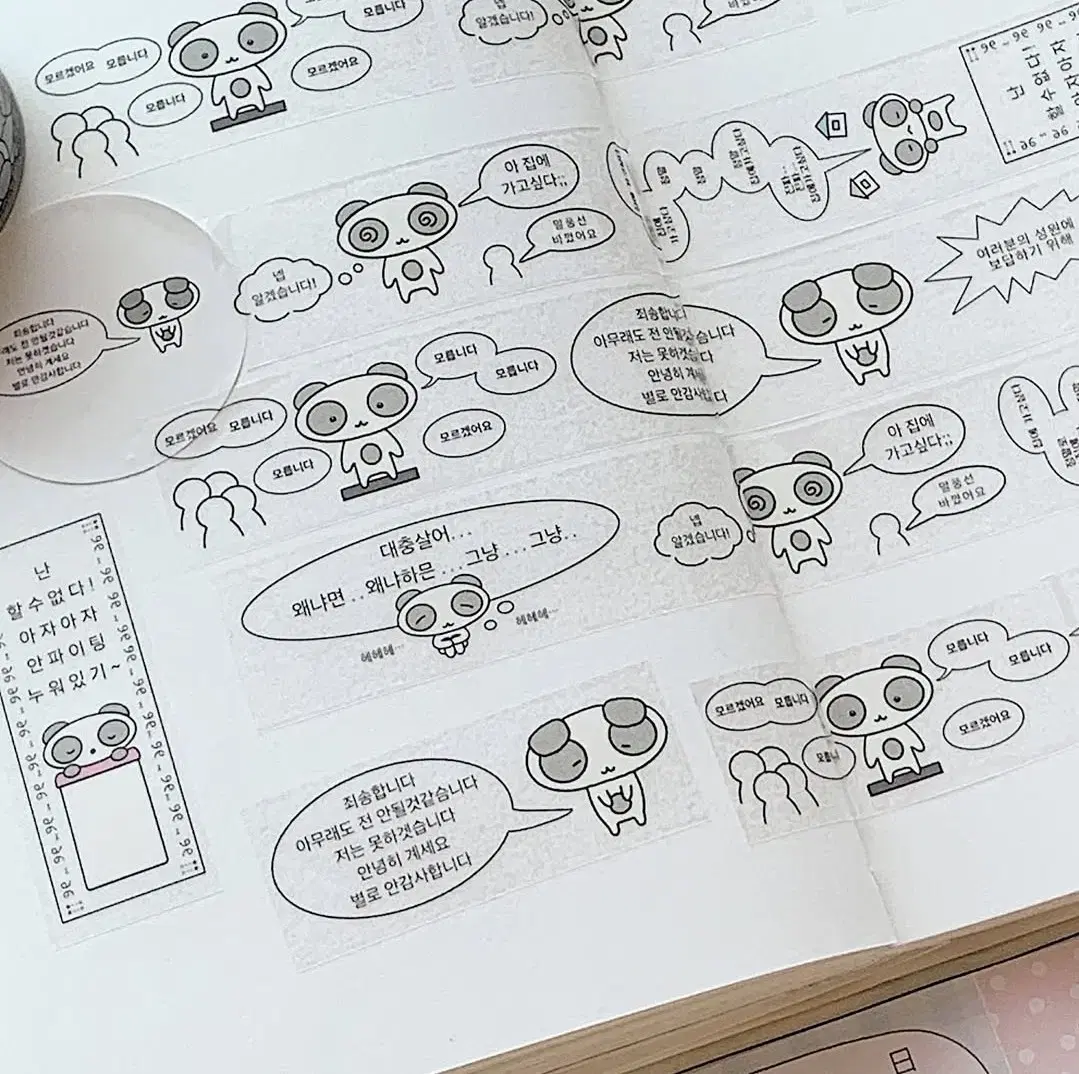 모르겠어요 모릅니다
모릅니다
모릅니다
모르겠어요
넵
알겠습니다!
바꼈어요
난
없다!
할수
아자아자
아 집에
가고싶다;;
말풍선
바꼈어요
넵
알겠습니다!
여러분의 성원에
보답하기 위해
죄송합니다
아무래도 전 안될것같습니다
저는 못하겟습니다
안녕히 계세요
별로 안감사합니다
죄송합니다
래도 전 안될것같습니다
저는 못하겟습니다
안녕히 계세요
별로 안감사합니다
모르겠어요 모릅니다
모릅니다
모릅니다
모릅니다
모르겠어요
아 집에
가고싶다;;
말풍선
바꼈어요
넵
알겠습니다!
대충살어...
왜냐면..왜냐하믄...그냥...그냥..
헤헤헤...
헤헤헤...
난
할수없다!
아자아자
안파이팅
누워있기~
모르겠어요 모릅니다
모릅니다
모릅니다
모르겠어요
죄송합니다
아무래도 전 안될것같습니다
저는 못하겟습니다
안녕히 계세요
별로 안감사합니다
日